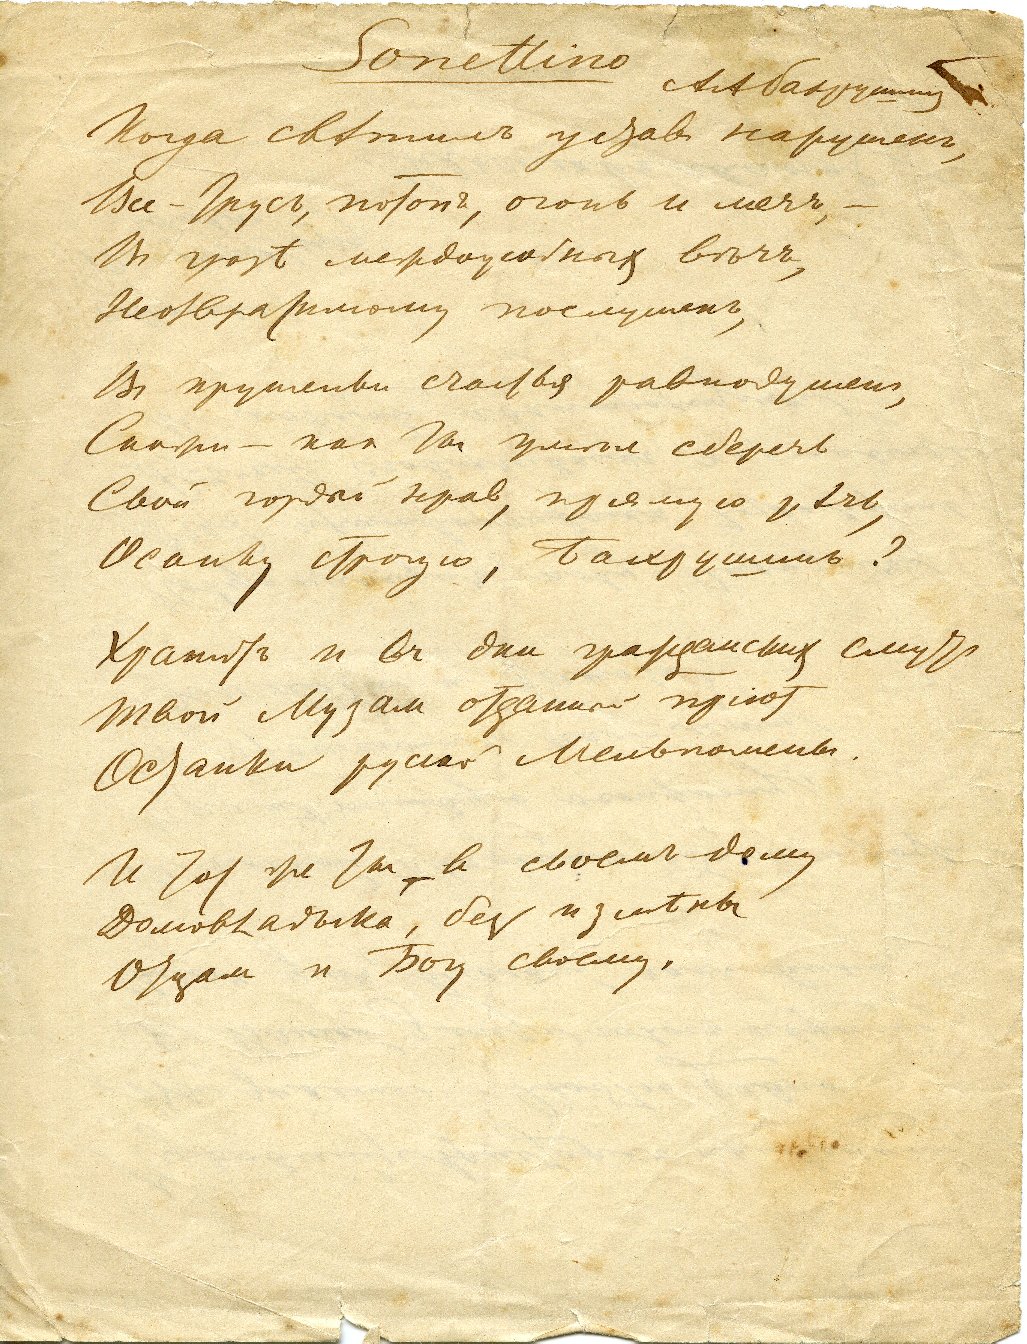 Sonettino
А А Бахрушину
Когда свѣтилъ уставъ нарушенъ,
Все – Трусъ, потопъ, огонь и мечъ, –
Въ грозѣ междоусобныхъ вѣчъ,
Неотвратимому послушенъ,
Въ крушеньи счастья равнодушенъ,
Скажи – какъ Ты умѣлъ сберечь
Свой гордый нрав, прямую рѣчь,
Осанку строгую, Бахрушинъ?
Хранитъ и въ дни гражданскихъ смутъ
Твой Музам отданный пріют
Останки русской Мельпомены.
И тот же Ты – в своемъ дому
Домовладыка, без измѣны
Отцам и Богу своему.